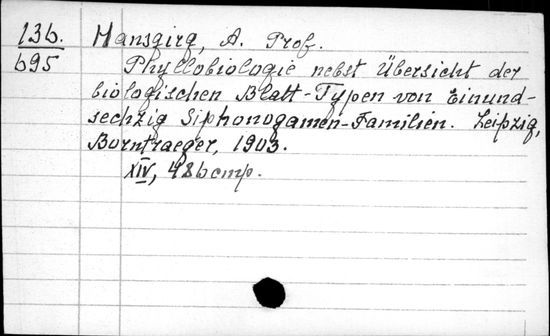 136. Hansgirg, A. Prof.
695 Phyllobiologie nebst Übersicht der
biologischen Blatt-Typen von Einund-
sechzig Siphonogamen-Familien. Leipzig,
Borntraeger, 1903.
XIV, 486 стр.